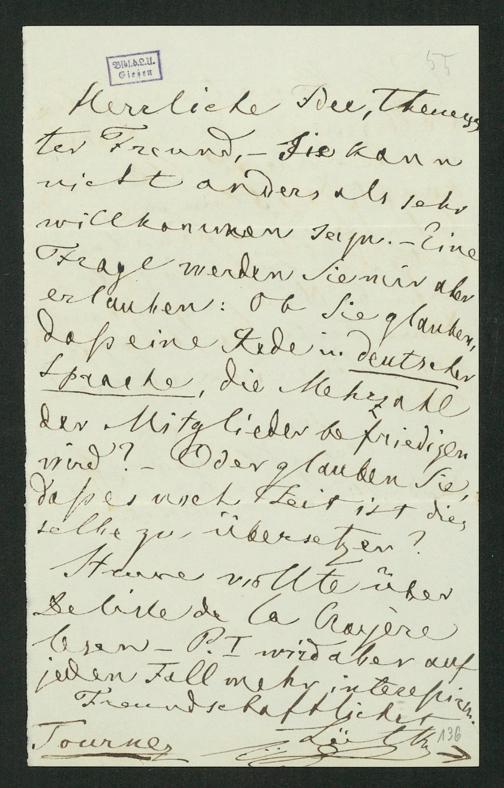 Bibl.d.L.U.
Gießen
55
Herrliche Idee, Theuers
ter Freund, – Sie kann
nicht anders als sehr
willkommen seyn. – Eine
Frage werden Sie mir aber
erlauben: Ob Sie glauben,
daß eine Rede in deutscher
Sprache, die Mehrzahl
der Mitglieder befriedigen
wird? – Oder glauben Sie,
daß es noch Zeit ist die
selbe zu übersetzen?
Struve wollte über
Delisle de la Croyère
lesen – P. I wird aber auf
jeden Fall mehr interessiren.
Freundschaftlichst
136
Tournez